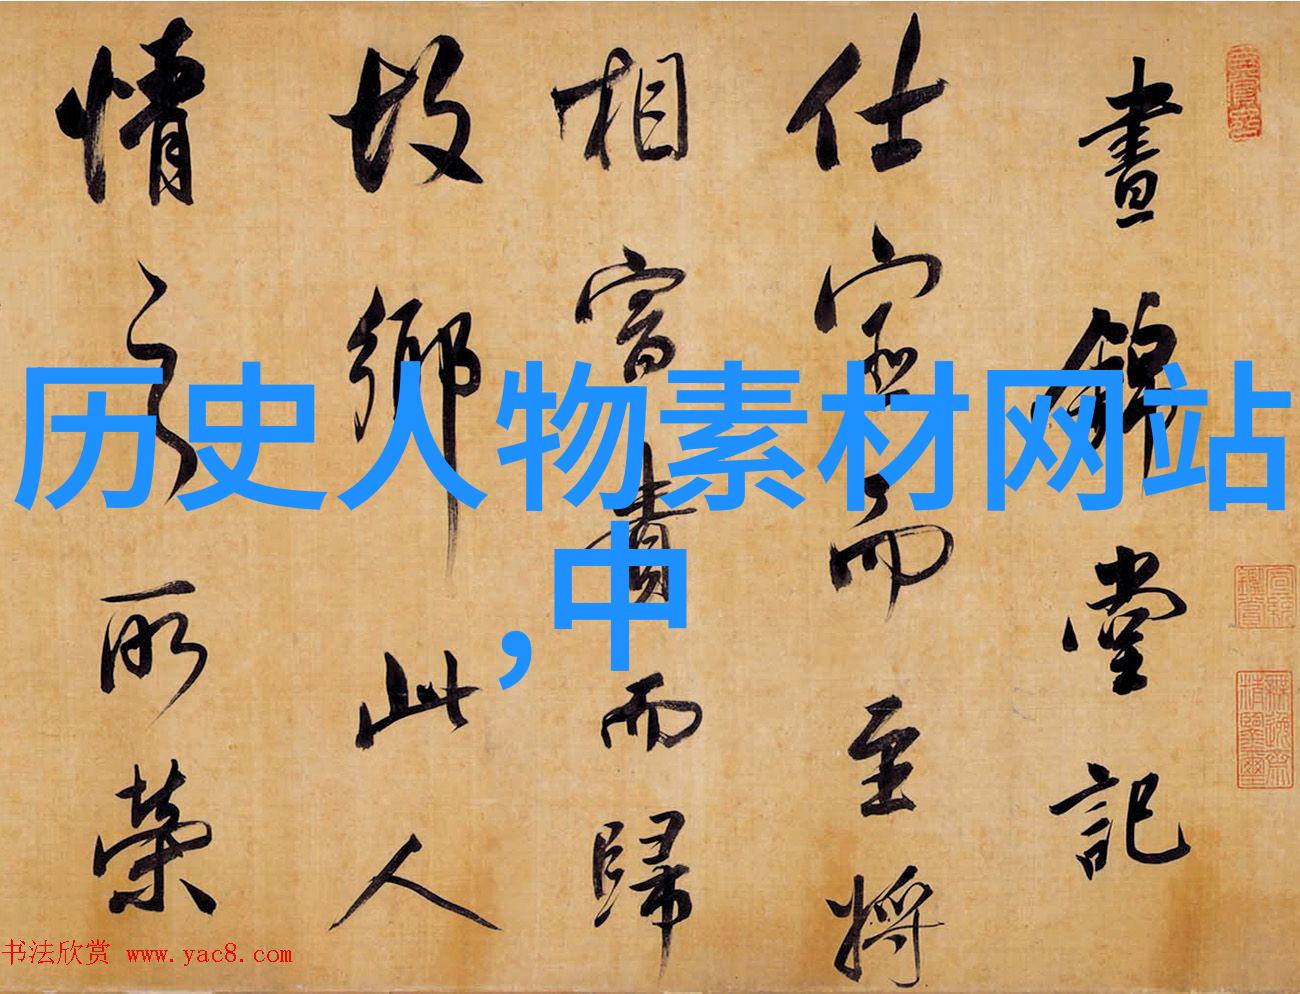 晝錦堂記
仕宦而至將
相富貴而歸
故鄉此人
情之所榮
历史人物素材网站
,中
书法欣赏 www.yac8.com